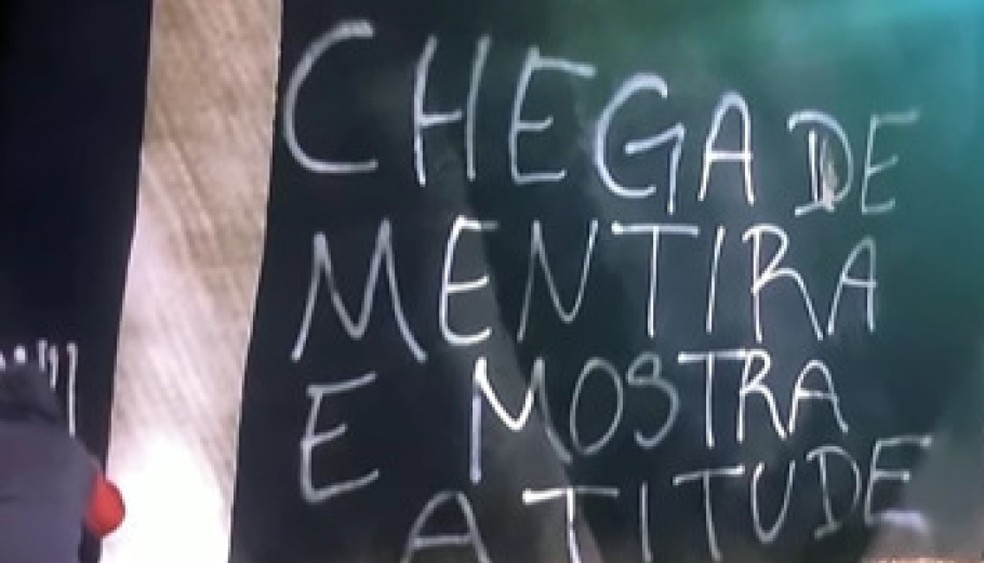 CHEGA DE
MENTIRA
E MOSTRA
ATITUDE